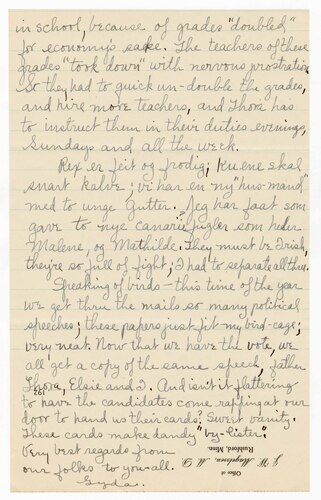 in school, because of grades "doubled"
for economy's sake. The teachers of these
grades "took down" with nervous prostration
So they had to quick un-double the grades,
and hire more teachers, and Thora has
to instruct them in their duties evenings,
Sundays and all the week.
Rex er feit og frodig; kuene skal
snart kalve; vi har en ny "hus-mand"
med to unge Gutter. Jeg har faat som
gave to nye canariefugler som heder
Malene, og Mathilde. They must be Irish,
they're so full of fight; I had to separate all three.
Speaking of birds - this time of the year
we get thru the mails so many political
speeches; these papers just fit my bird-cage,
very neat. Now that we have the vote, we
all get a copy of the same speech, father
Thora, Elsie and I. And isn't it flattering
to have the candidates come rapping at our
door to hand us their cards? Sweet vanity.
These cards make dandy "by-lister".
Very best regards from
our folks to you-all.
Gyda.
Office of
J. W. Magelssen, M. D.
Rushford, Minn.
192